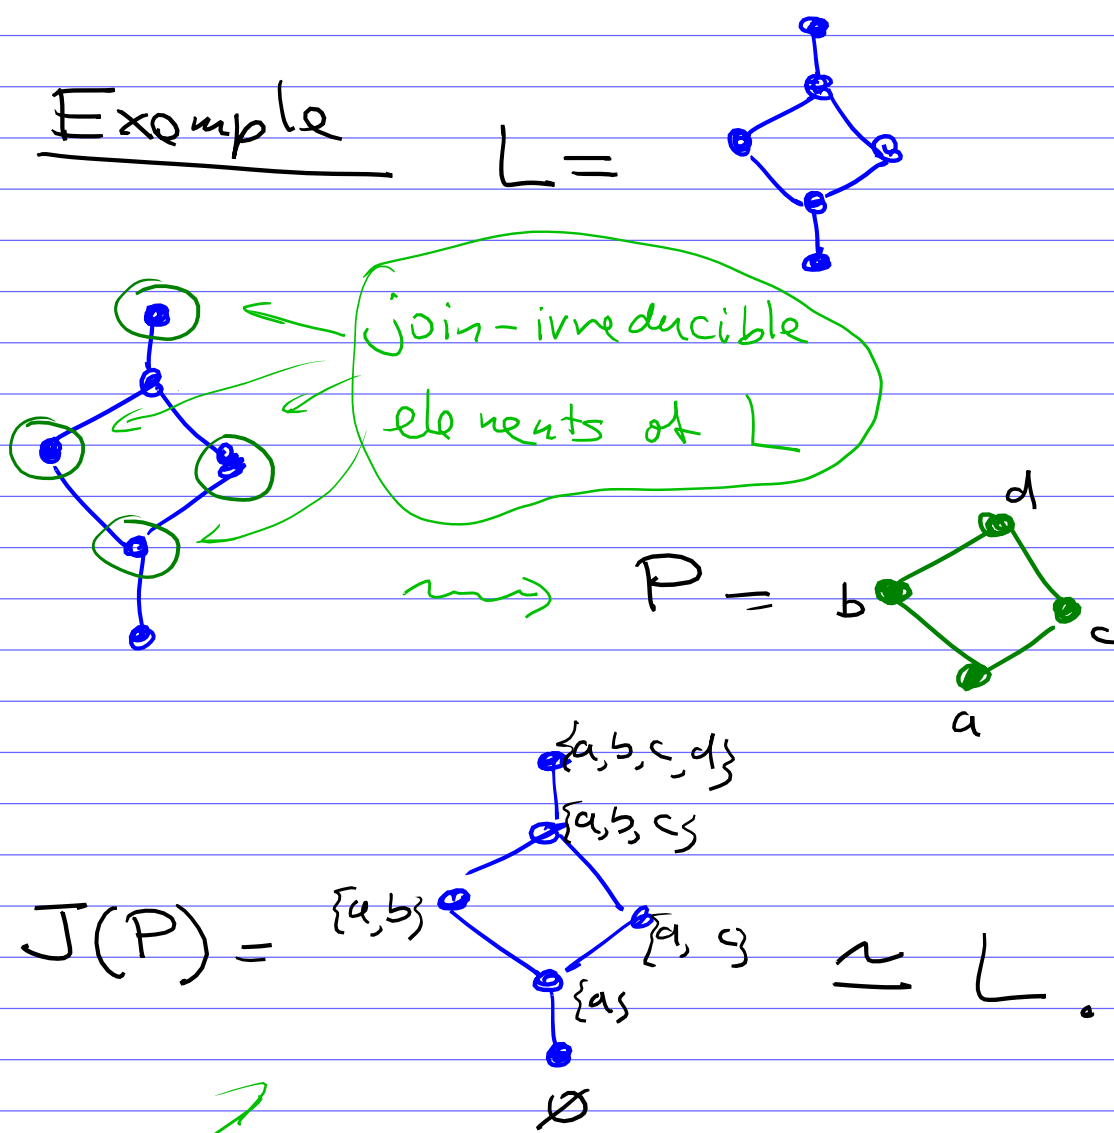 Example
L =
join-irreducible
elements of L
d
P = b
c
a
{a,b,c,d}
{a,b,c}
{a,b}
J(P) =
{a, c}
≃ L.
{a}
∅